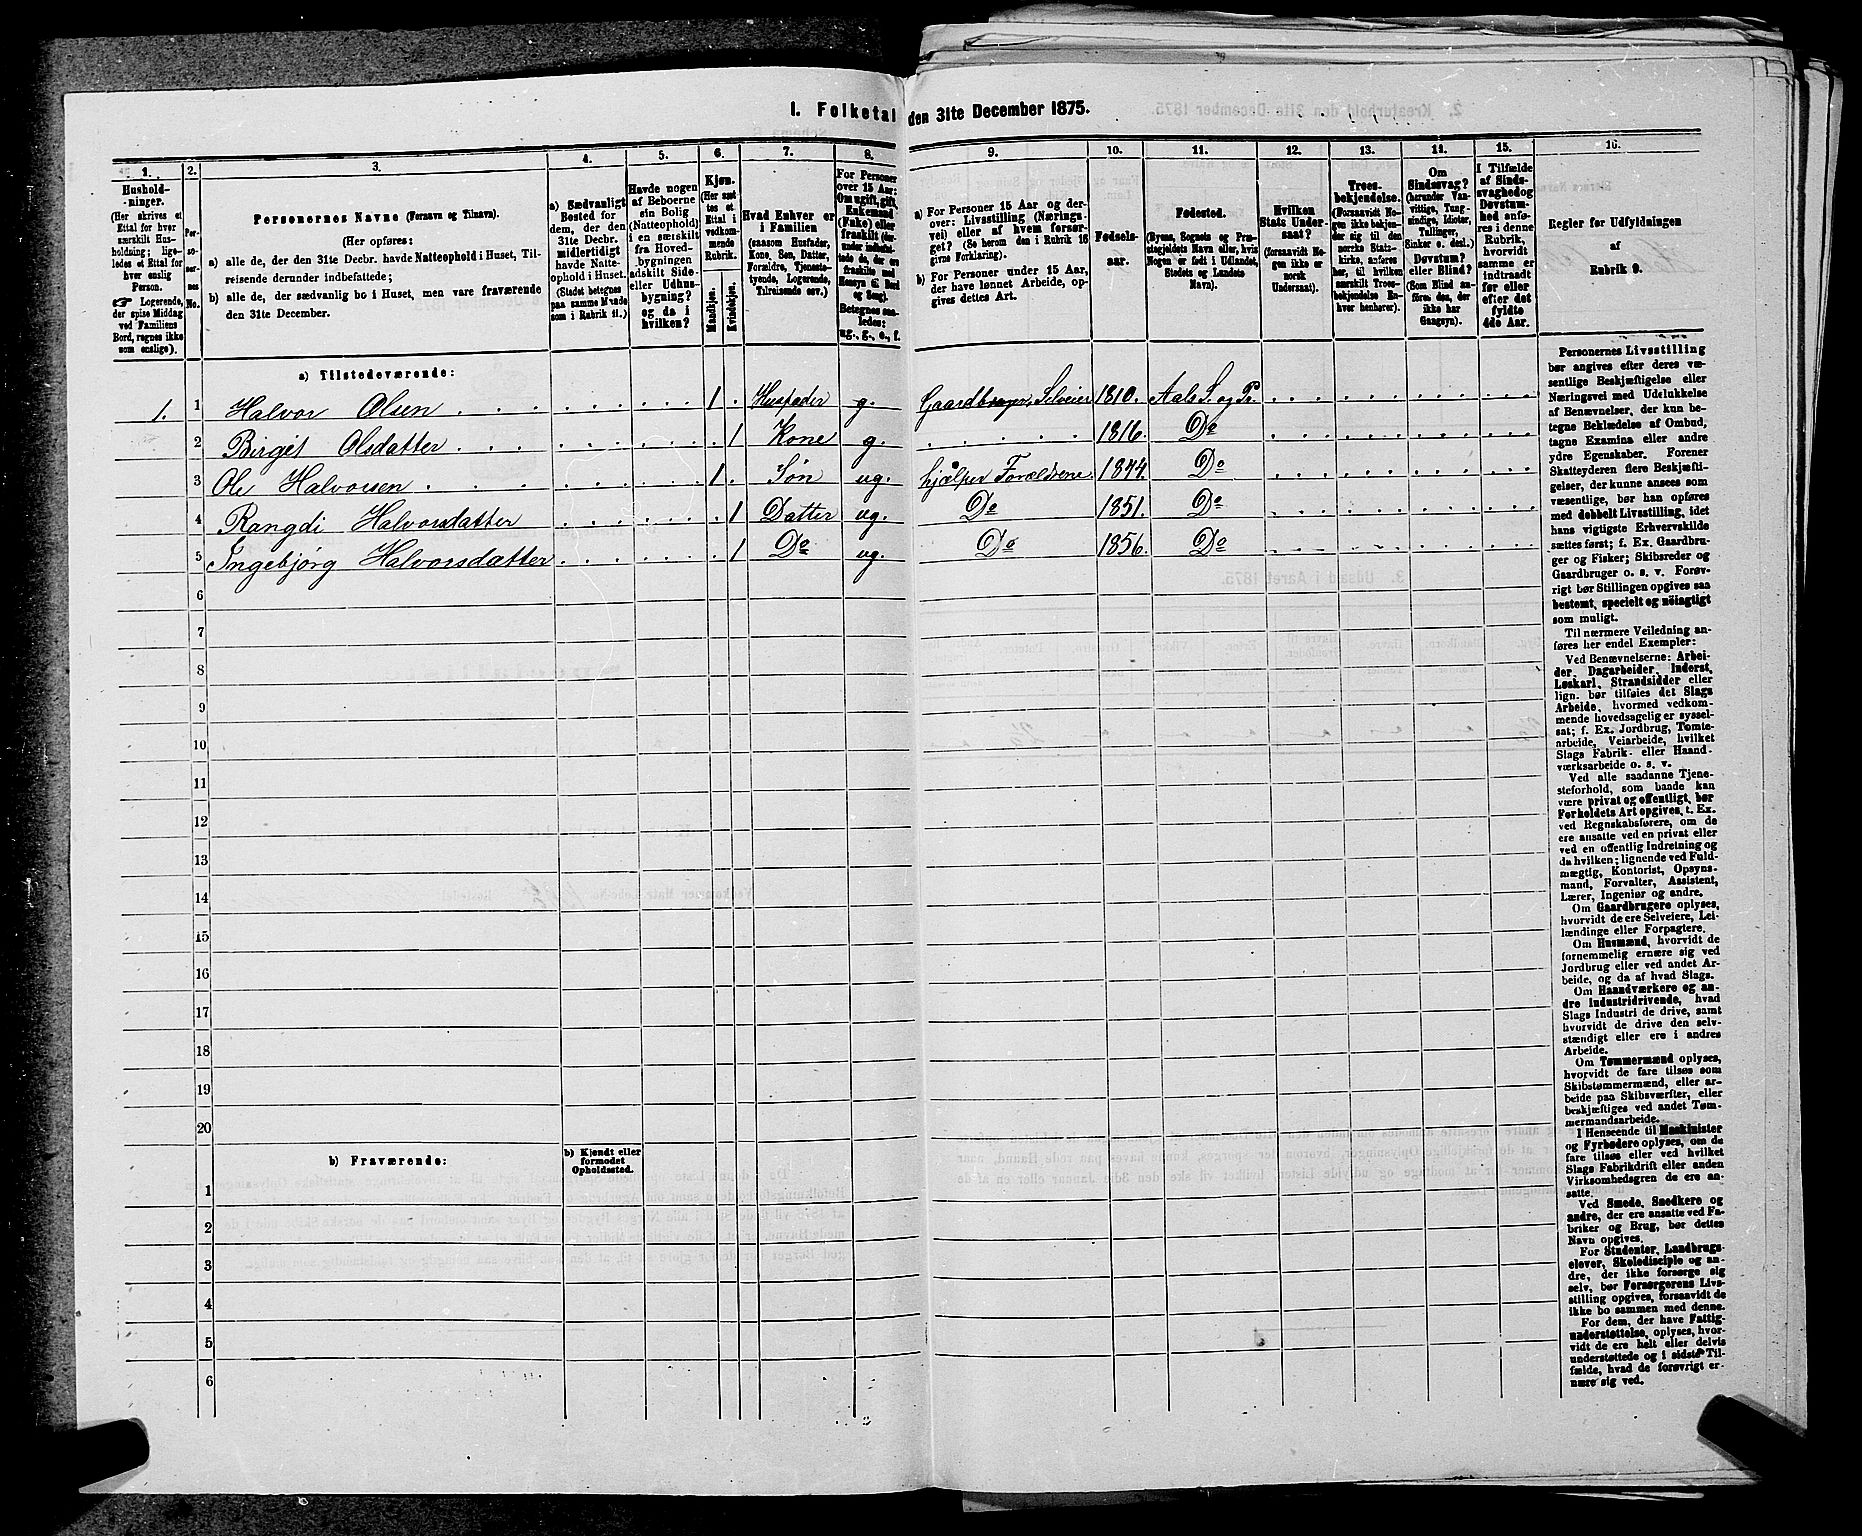 1. Folketal den 31te December 1875.
1.
Hushold-
ninger.
(Her skrives et
Ettal for hver
særskilt Hus-
holdning; lige-
ledes et Ettal for
hver enslig
Person.
☞ Logerende,
der spise Middag
ved Familiens
Bord, regnes ikke
som enslige).
2.
Per-
so-
ner-
nes
No.
3.
Personernes Navne (Fornavn og Tilnavn).
(Her opføres:
a) alle de, der den 31te Decbr. havde Natteophold i Huset, Til-
reisende derunder indbefattede;
b) alle de, der sædvanlig bo i Huset, men vare fraværende
den 31te December.
4.
a) Sædvanligt
Bosted for
dem, der den
31te Decbr.
midlertidigt
havde Natte-
ophold i Huset.
(Stedet betegnes
paa samme Maade
som i Rubrik 11.)
5.
Havde nogen
af Beboerne
sin Bolig
(Natteophold)
i en særskilt
fra Hoved-
bygningen
adskilt Side-
eller Udhus-
bygning?
og da i
hvilken?
6.
Kjøn.
(Her sæt-
tes et
Ettal i
vedkom-
mende
Rubrik.
Mandkjøn.
Kvindekjøn.
7.
Hvad Enhver er
i Familien
(saasom Husfader,
Kone, Søn, Datter,
Forældre, Tjeneste-
tyende, Logerende,
Tilreisende osv.)
8.
For Personer
over 15 Aar:
Om ugift, gift,
Enkemand
(Enke) eller
fraskilt
Betegnes saa-
ledes:
ug., g., e., f.
9.
a) For Personer 15 Aar og der-
over: Livsstilling (Nærings-
vei) eller af hvem forsør-
get? (Se herom den i Rubrik 16
givne Forklaring).
b) For Personer under 15 Aar,
der have lønnet Arbeide, op-
gives dettes Art.
10.
Fødsels-
aar.
11.
Fødested.
(Byens, Sognets og Præ-
stegjeldets Navn eller, hvis
Nogen er født i Udlandet,
Stedets og Landets
Navn).
12.
Hvilken
Stats Under-
saat?
(forsaavidt No-
gen ikke er
norsk
Undersaat).
13.
Troes-
bekjendelse.
(Forsaavidt No-
gen ikke bekjen-
der sig til den
norske Stats-
kirke, anføres
her, til hvilken
Troesbekjendelse En-
hver henhører).
14.
Om
Sindssvag?
(herunder Van-
vittige, Tung-
sindige, Idioter,
Tullinger,
Sinker o. desl.)
Døvstum?
eller Blind?
(Som Blind an-
føres den, der
ikke har
Gangsyn).
15.
I Tilfælde
af Sinds-
svaghed og
Døvstum-
hed anfø-
res i denne
Rubrik,
hvorvidt
samme er
indtraadt
før eller
efter det
fyldte
4de Aar.
16.
Regler for Udfyldningen
af
Rubrik 9.
a) Tilstedeværende:
1. 1 Halvor Olsen 1 Husfader g. Gaardbruger, Selveier 1810. Aals S. og Pr.
2 Birgit Olsdatter 1 Kone g. 1816. Do
3 Ole Halvorsen 1 Søn ug. hjælper Forældrene 1844. Do
4 Rangdi Halvorsdatter 1 Datter ug. Do 1851. Do
5 Ingebjørg Halvorsdatter 1 Do ug. Do 1856. Do
6
7
8
9
10
11
12
13
14
15
16
17
18
19
20
b) Fraværende:
b) Kjendt eller
formodet
Opholdssted.
1
2
3
4
5
6
Personernes Livsstilling
bør angives efter deres væ-
sentlige Beskjæftigelse eller
Næringsvei med Udelukkelse
af Benævnelser, der kun be-
tegne Beklædelse af Ombud,
tagne Examina eller andre
ydre Egenskaber. Forener
Skatteyderen flere Beskjæfti-
gelser, der kunne ansees som
væsentlige, bør han opføres
med dobbelt Livsstilling, idet
hans vigtigste Erhvervskilde
sættes først; f. Ex. Gaardbru-
ger og Fisker; Skibsreder og
Gaardbruger o. s. v. Forøv-
rigt bør Stillingen opgives saa
bestemt, specielt og nöiagtigt
som muligt.
Til nærmere Veiledning an-
føres her endel Exempler:
Ved Benævnelserne: Arbei-
der, Dagarbeider, Inderst,
Løskarl, Strandsidder eller
lign. bør tilføies det Slags
Arbeide, hvormed vedkom-
mende hovedsagelig er syssel-
sat; f. Ex. Jordbrug, Tomte-
arbeide, Veiarbeide, hvilket
Slags Fabrik- eller Haand-
værksarbeide o. s. v.
Ved alle saadanne Tjene-
steforhold, som baade kan
være privat og offentligt, bør
Forholdets Art opgives, t. Ex.
ved Regnskabsførere, om de
ere ansatte ved en privat eller
ved en offentlig Indretning og
da hvilken; lignende ved Fuld-
mægtig, Kontorist, Opsyns-
mand, Forvalter, Assistent,
Lærer, Ingeniør og andre.
Om Gaardbrugere oplyses,
hvorvidt de ere Selveiere, Lei-
lændinge eller Forpagtere.
Om Husmænd, hvorvidt de
fornemmelig ernære sig ved
Jordbrug eller ved andet Ar-
beide, og da af hvad Slags.
Om Haandværkere og an-
dre Industridrivende, hvad
Slags Industri de drive, samt
hvorvidt de drive den selv-
stændigt eller ere i andres
Arbeide.
Om Tømmermænd oplyses,
hvorvidt de fare tilsøs som
Skibstømmermænd, eller ar-
beide paa Skibsværfter, eller
beskjæftiges ved andet Tøm-
mermandsarbeide.
I Henseende til Maskinister
og Fyrbødere oplyses, om de
fare tilsøs eller ved hvilket
Slags Fabrikdrift eller anden
Virksomhedsgren de ere an-
satte.
Ved Smede, Snedkere og
andre, der ere ansatte ved Fa-
briker og Brug, bør dettes
Navn opgives.
For Studenter, Landbrugs-
elever, Skoledisciple og an-
dre, der ikke forsørge sig
selv, bør Forsørgerens Livs-
stilling opgives, forsaavidt de
ikke bo sammen med denne.
For dem, der have Fattig-
understøttelse, oplyses, hvor-
vidt de ere helt eller delvis
understøttede og i sidste Til-
fælde, hvad de forøvrigt er-
nære sig ved.